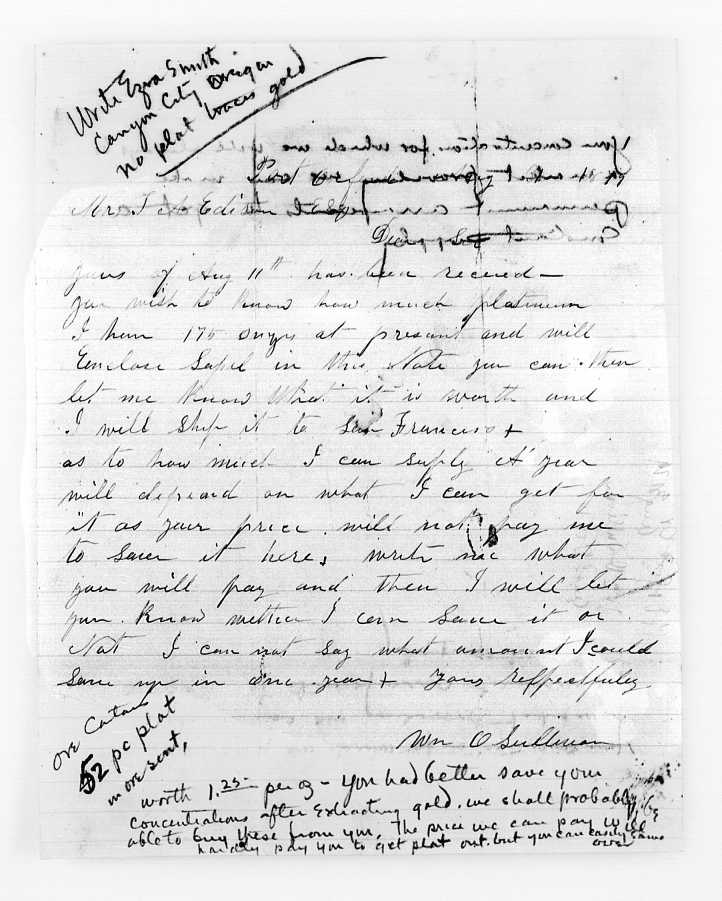 Write Ezra Smith
Canyon City Oregon
no plat traces gold
you concentration for which we will
Port Orford
permanent
constant supply
Mr. T A Edison Esq
Dear Sir
yours of Aug 11th has been received—
you wish to know how much platinum
I have 175 at present and will
Enclose Sapel in this Note you can then
let me know What it is worth and
I will Ship it to San Francisco +
as to how much I can Suply A year
will depend on what I can get for
it as your price will not pay me
to Save it here, write me what
you will pay and then I will let
you Know wether I can Save it or
Not I can not Say what amount I could
Save up in one year + Yours Respectfuley
Wm O Sullivan
ore
52 pc plat
more sent,
worth 1.25 per oz — You had better save your
concentrations after Extracting gold. we shall probably be
able to buy these from you. The price we can pay will
hardly pay you to get plat out. but you can easily save
over